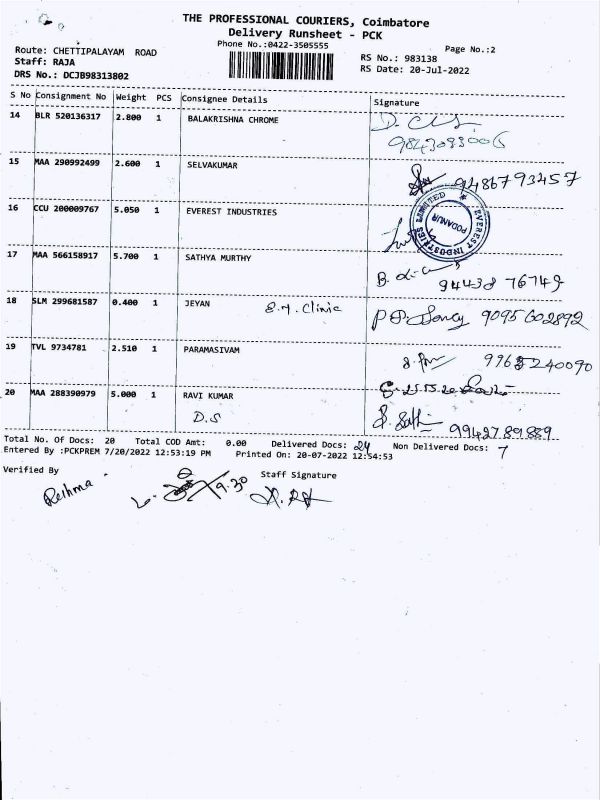 THE PROFESSIONAL COURIERS, Coimbatore
Delivery Runsheet - PCK
Phone No.:0422-3505555
Page No.:2
Route: CHETTIPALAYAM ROAD
RS No.: 983138
Staff: RAJA
RS Date: 20-Jul-2022
DRS No.: DCJB98313802
S No Consignment No Weight PCS Consignee Details Signature
14 BLR 520136317 2.800 1 BALAKRISHNA CHROME
15 MAA 290992499 2.600 1 SELVAKUMAR
9486793457
16 CCU 200009767 5.050 1 EVEREST INDUSTRIES
EVEREST INDUSTRIES LIMITED
PODANUR
17 MAA 566158917 5.700 1 SATHYA MURTHY
94438 76749
18 SLM 299681587 0.400 1 JEYAN S.M. Clinic
9095602892
19 TVL 9734781 2.510 1 PARAMASIVAM
20 MAA 288390979 5.000 1 RAVI KUMAR
D.S
9942789889
Total No. Of Docs: 20 Total COD Amt: 0.00 Delivered Docs: 24 Non Delivered Docs: 7
Entered By :PCKPREM 7/20/2022 12:53:19 PM Printed On: 20-07-2022 12:54:53
Verified By Staff Signature
Reshma 9.30